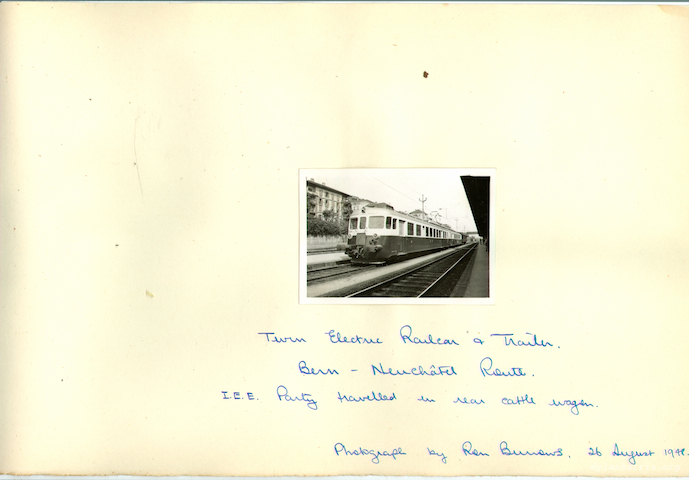 Twin Electric Railcar & Trailer.
Bern - Neuchâtel Route.
I.E.E. Party travelled in rear cattle wagon.
Photograph by Ron Burrows. 26 August 1948.